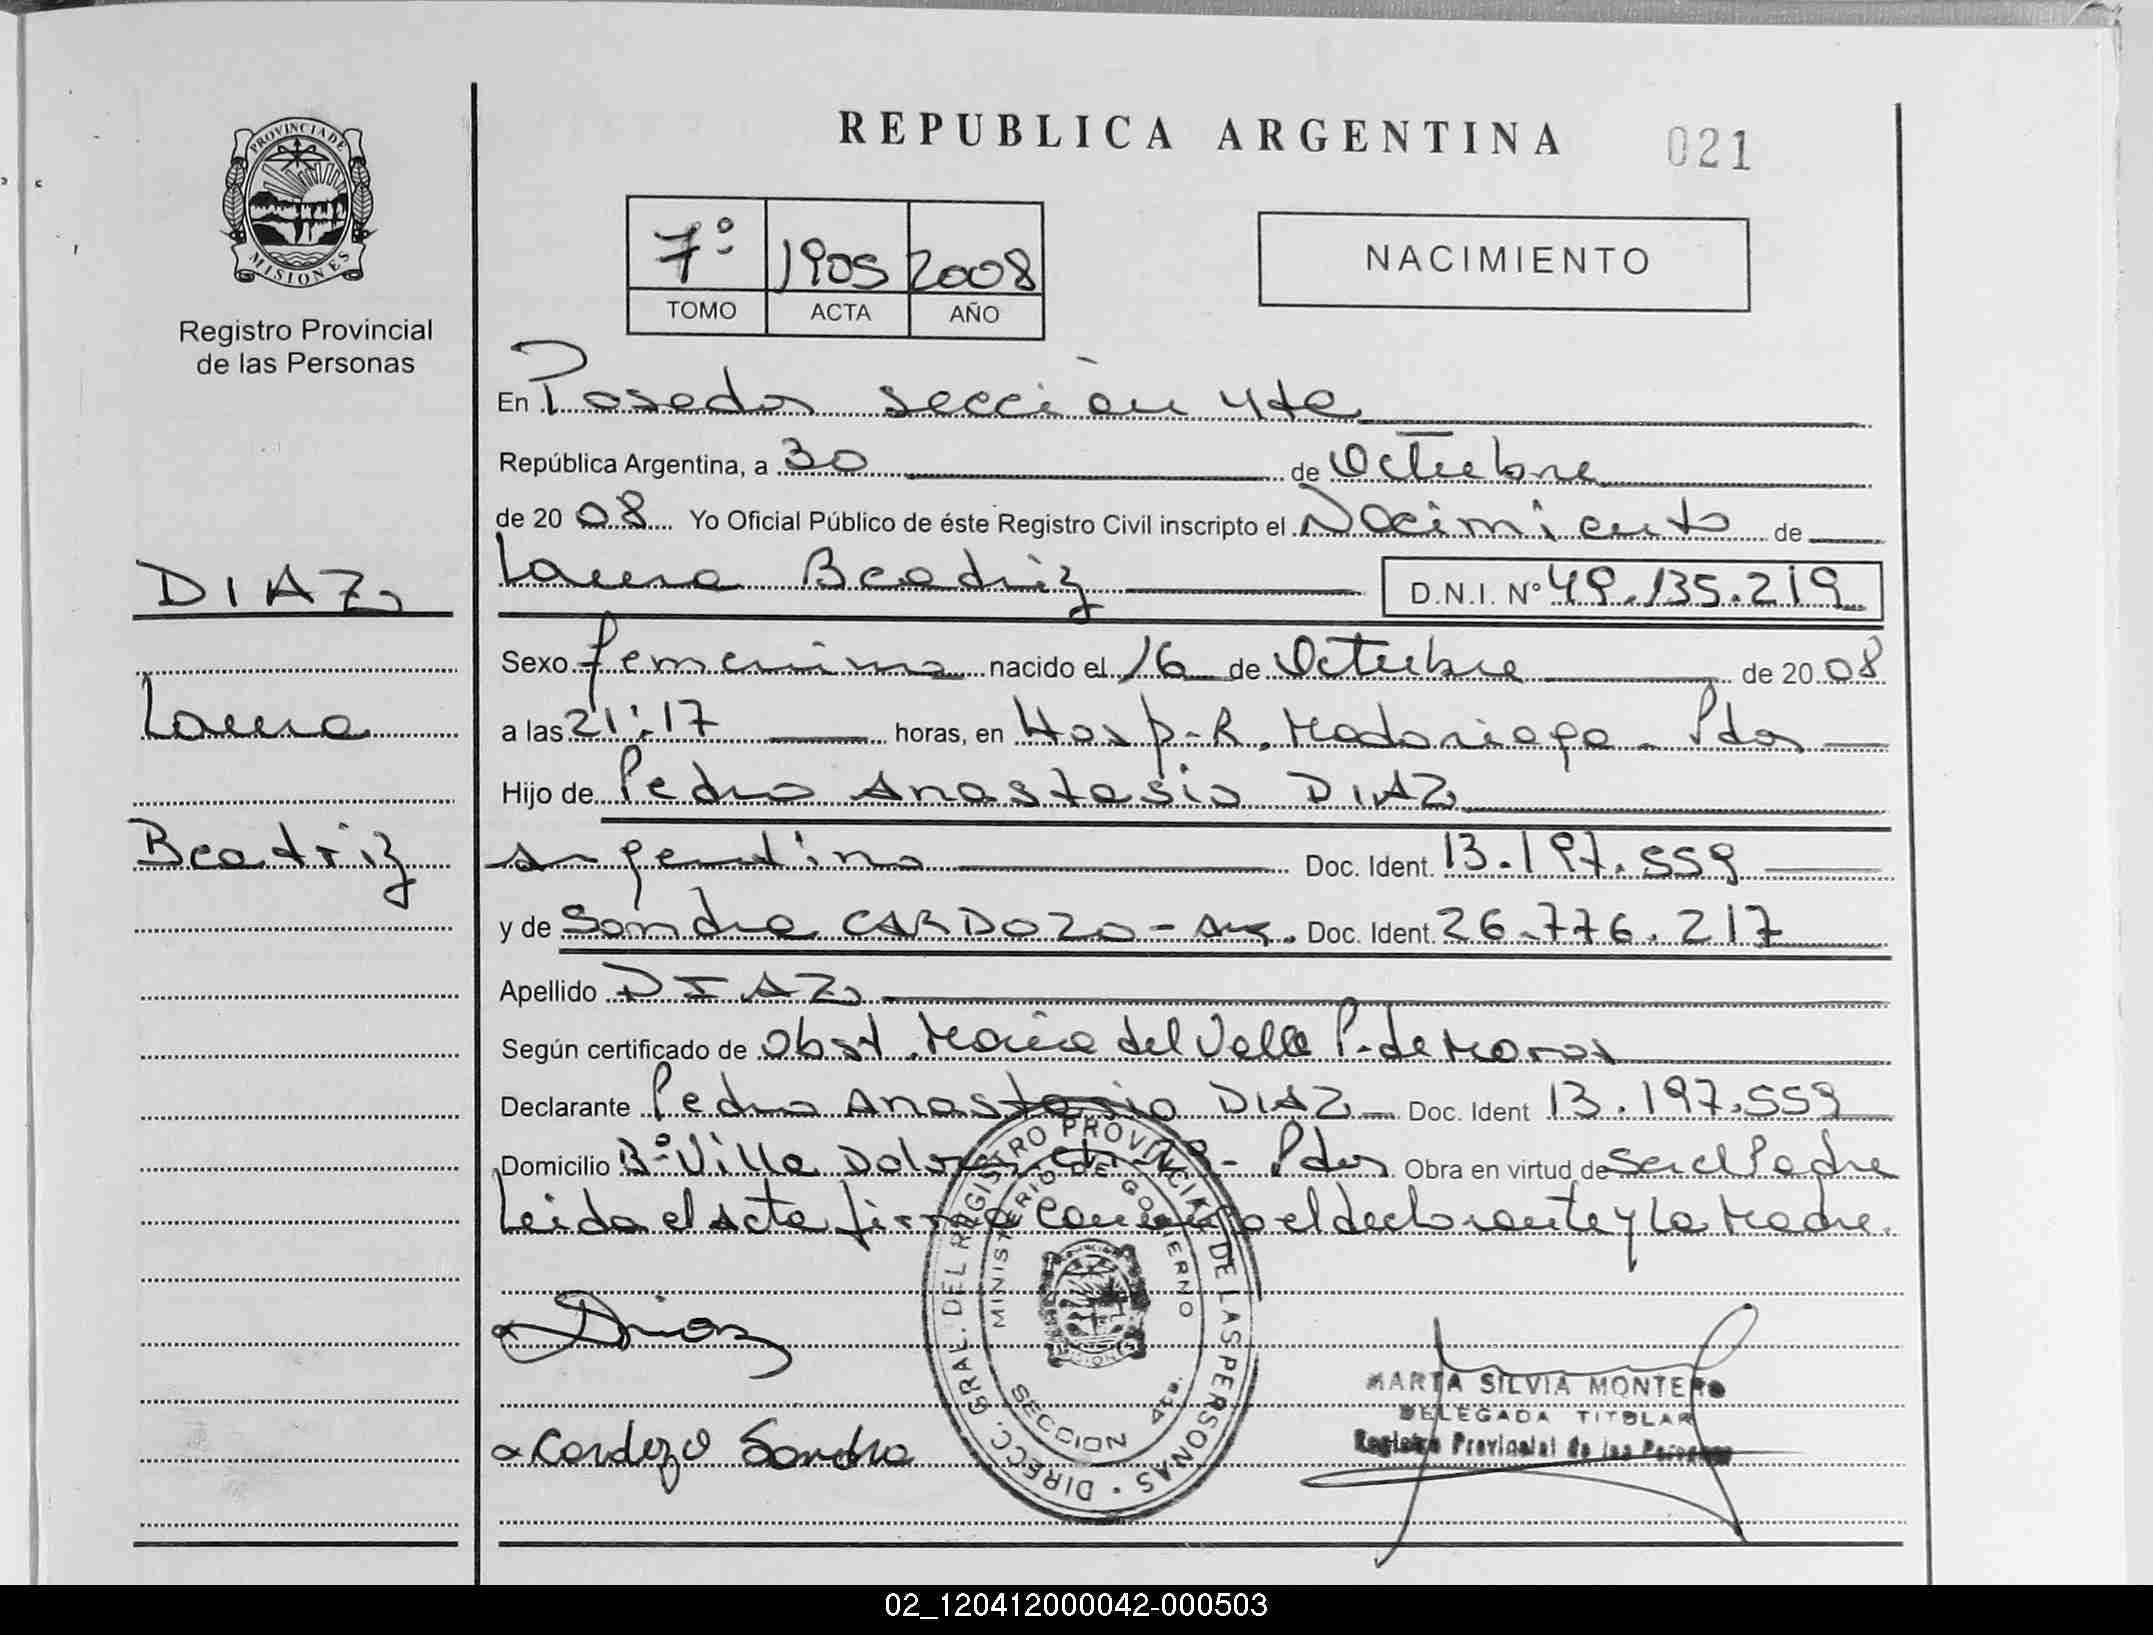 REPUBLICA ARGENTINA
021
PROVINCIA DE
MISIONES
Registro Provincial
de las Personas
7º 1905 2008
TOMO ACTA AÑO
NACIMIENTO
En Posadas sección 4ta
República Argentina, a 30 de Octubre
de 2008 Yo Oficial Público de éste Registro Civil inscripto el Nacimiento de
Laura Beatriz D.N.I. Nº 49.135.219
DIAZ
Laura
Beatriz
Sexo femenino nacido el 16 de Octubre de 2008
a las 21:17 horas, en Hosp. R. Madariaga - Pdas
Hijo de Pedro Anastasio DIAZ
argentino Doc. Ident. 13.197.559
y de Sandra CARDOZO - Arg. Doc. Ident. 26.776.217
Apellido DIAZ
Según certificado de Obst. María del Valle P. de Moras
Declarante Pedro Anastasio DIAZ Doc. Ident 13.197.559
Domicilio Bº Villa - Pdas Obra en virtud de ser el Padre
Leida el Acta firma conmigo el declarante y la Madre.
Diaz
Cardozo Sandra
DIRECC. GRAL. DEL REGISTRO PROVINCIAL DE LAS PERSONAS
MINISTERIO DE GOBIERNO
SECCION 4ta.
MARTA SILVIA MONTERO
DELEGADA TITULAR
Registro Provincial de las Personas
02_120412000042-000503